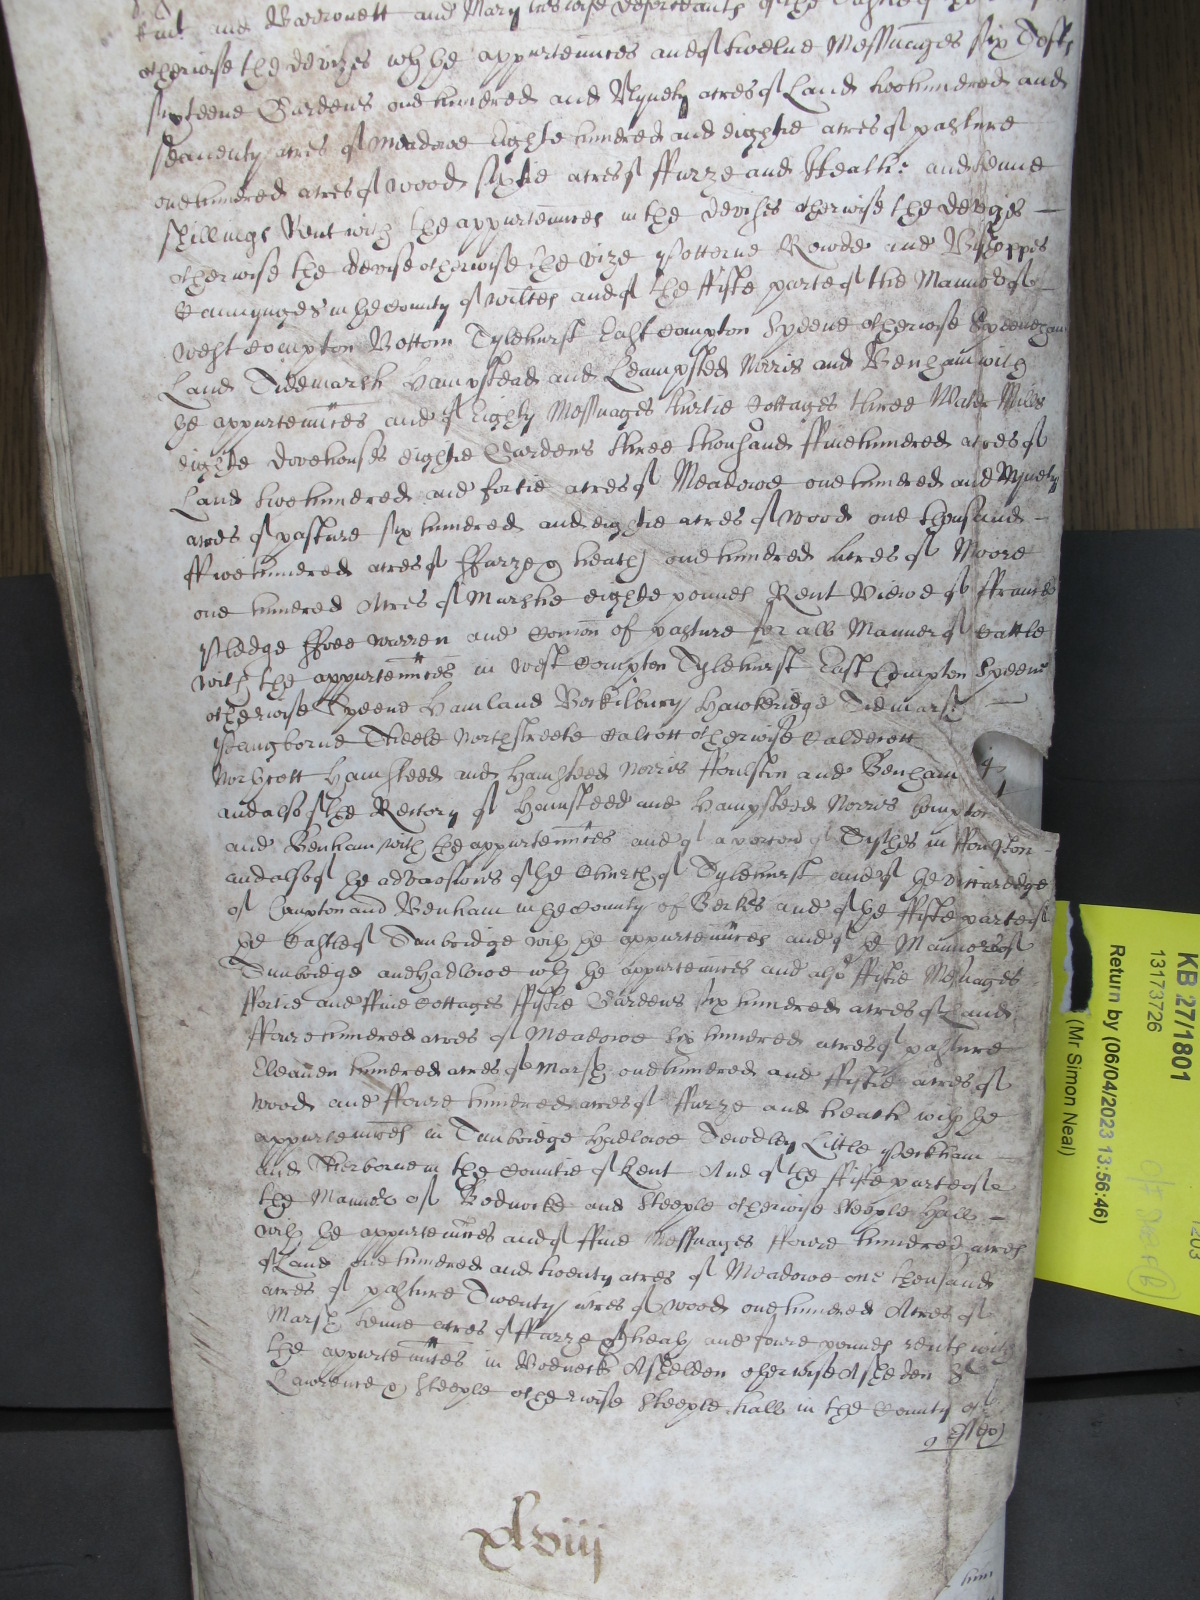 Knt and Barronett and Mary his wife deforceants of the Castle of the
otherwise the devizes wth the appurtennces and of twelve Messuages six Tofts
sixteene Gardens one hundred and Nynety acres of Land two hundred and
seaventy acres of Meadowe Eighte hundred and eightie acres of pasture
one hundred acres of wood sixtie acres of ffurze and Heath: and tenne
shillings Rent with the appurtennces in the Devises otherwise the devizes —
otherwise the devise otherwise the vize Potterne Rowde and Bishopps
Cannynges in the County of Wiltes and of the ffifte parte of the Mannors of —
West Compton Bottom Tylehurst East Compton Speene otherwise Speenham
Land Tidemarsh Hampstead and Hampsted Norris and Benham with
the appurtennces and of Eighty Messuages thirtie Cottages three Water Mills
eighte dovehouses eightie Gardens three thousand ffive hundred acres of
Land two hundred and fortie acres of Meadowe one hundred and Nynety
acres of pasture six hundred and eightie acres of wood one thousand —
ffive hundred acres of ffurze & heath one hundred Acres of Moore
one hundred Acres of Marshe eighte pounds Rent Viewe of ffrancke
pledge ffree warren and Comon of pasture for all Manner of Cattle
with the appurtennces in West Compton Tylehurst East Compton Speene
otherwise Speene Hamland Bockilbury Hawkridge Tidmarsh —
Pangborne Theele Northstreete Calcott otherwise Caldecott
Norhcott Hamsteed and Hamsteed Norris ffoulsten and Benham
and also of the Rectory of Hamsteed and Hampsteed Norris Compton
and Benham with the appurtennces and of a porcon of Tythes in ffoulston
and also of the advowsons of the Church of Tylehurst and of the viccaredge
of Compton and Benham in the County of Berks and of the ffifte parte of
the Castle of Tunbridge with the appurtennces and of the Mannors of
Tunbridge and Hadlowe wth the appurtennces and also ffiftie Messuages
ffortie and ffive Cottages ffiftie Gardens six hundred acres of Land
ffoure hundred acres of Meadowe six hundred acres of pasture
Eleaven hundred acres of Marsh one hundred and ffiftie acres of
wood and ffoure hundred acres of ffurze and heath with the
appurtennces in Tunbridge Hadlowe Tewdley Little Peckham —
and Sherborne in the Countie of Kent And of the ffifte parte of
the Mannor of Bodnecke and Steeple otherwise Steeple Hall —
with the appurtennces and of ffive Messuages ffoure hundred acres
of Land one hundred and twenty acres of Meadowe one thousand
acres of pasture Twenty acres of wood one hundred Acres of
Marsh tenne acres of ffurze & heath and foure pounds rent with
the appurtennces in Bodneck Ashelden otherwise Asheden St
Lawrence & Steeple otherwise Steeple hall in the County of
Essex
xlviij
KB 27/1801
13173726
Return by (06/04/2023 13:56:46)
(Mr Simon Neal)
1203